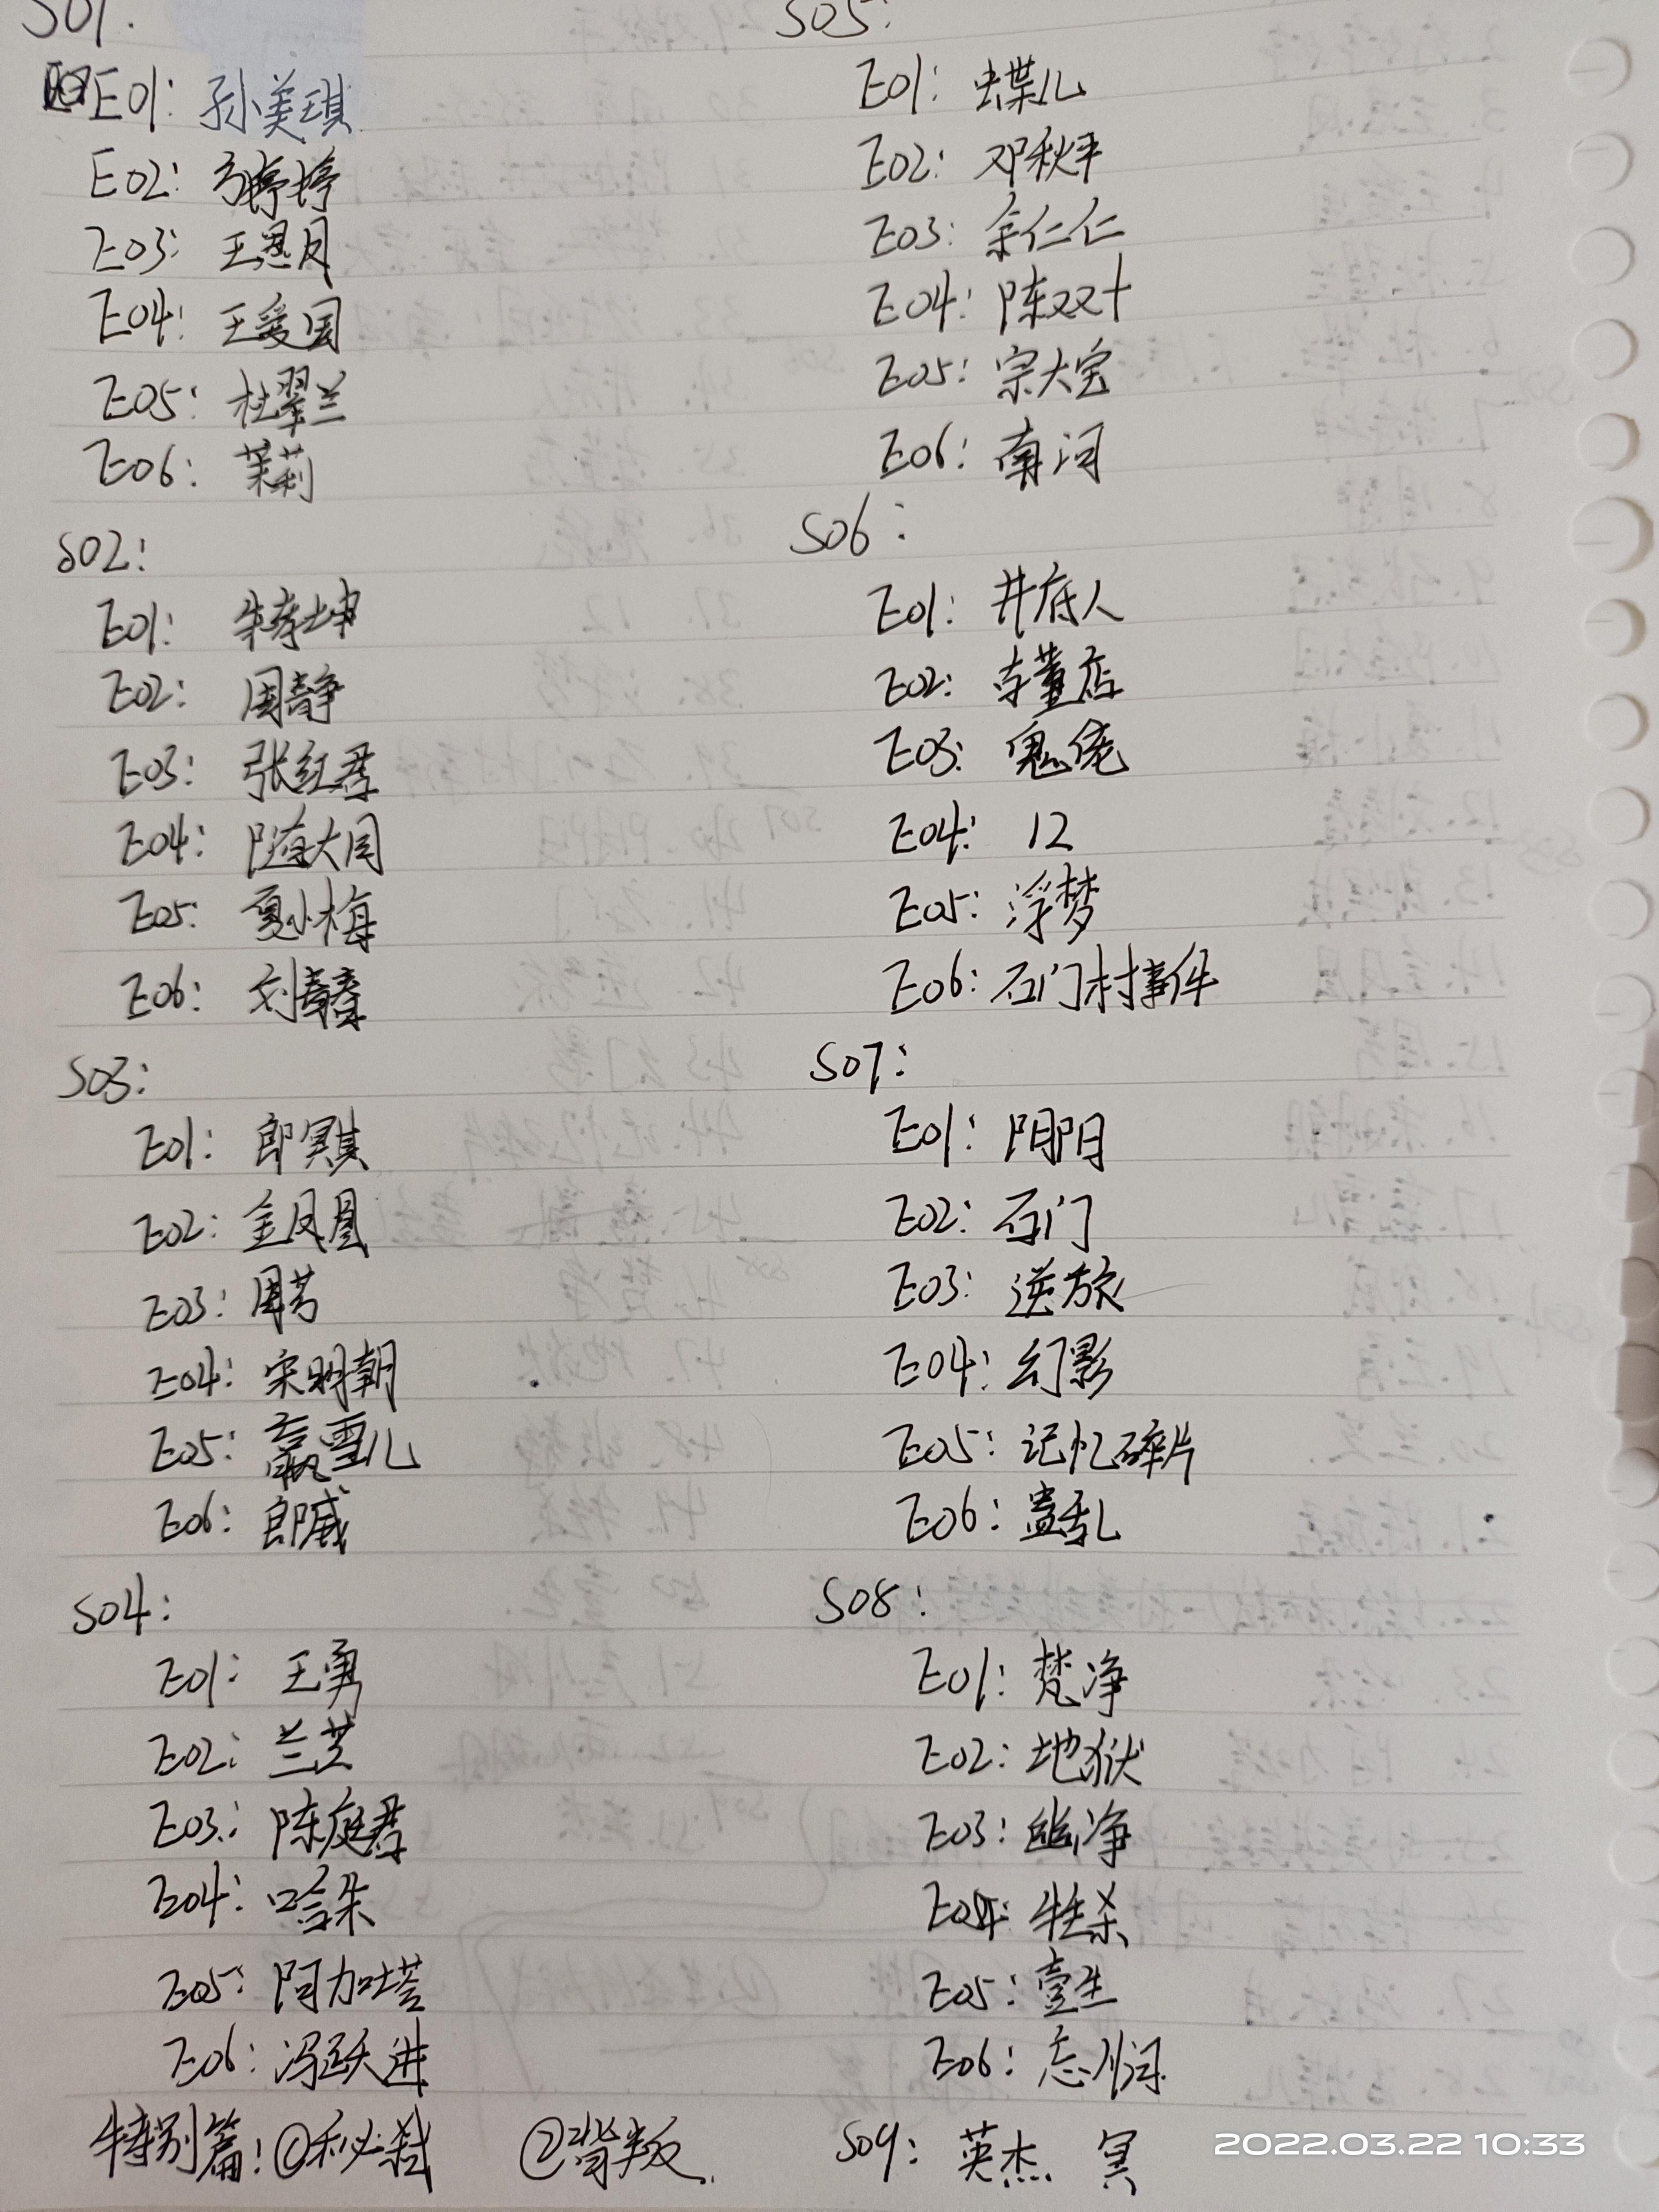 S01:
E01: 孙美琪
E02: 方婷婷
E03: 王思月
E04: 王爱国
E05: 杜翠兰
E06: 茉莉
S02:
E01: 朱孝坤
E02: 周静
E03: 张红君
E04: 隋大同
E05: 夏小梅
E06: 刘青春
S03:
E01: 郎冥棋
E02: 金凤凰
E03: 周芳
E04: 宋明朝
E05: 嬴雪儿
E06: 郎威
S04:
E01: 王勇
E02: 兰芝
E03: 陈庭君
E04: 哈朱
E05: 阿加塔
E06: 冯跃进
特别篇: ①秘弑 ②背叛.
S05:
E01: 蝶儿
E02: 邓秋平
E03: 余仁仁
E04: 陈双十
E05: 宗大宝
E06: 南河
S06:
E01: 井底人
E02: 古董店
E03: 傀儡
E04: 12
E05: 浮梦
E06: 石门村事件
S07:
E01: 阴阳
E02: 石门
E03: 逆旅
E04: 幻影
E05: 记忆碎片
E06: 蛊乱
S08:
E01: 梵净
E02: 地狱
E03: 幽净
E04: 牲杀
E05: 壹生
E06: 忘川河
S09: 英杰 冥
2022.03.22 10:33